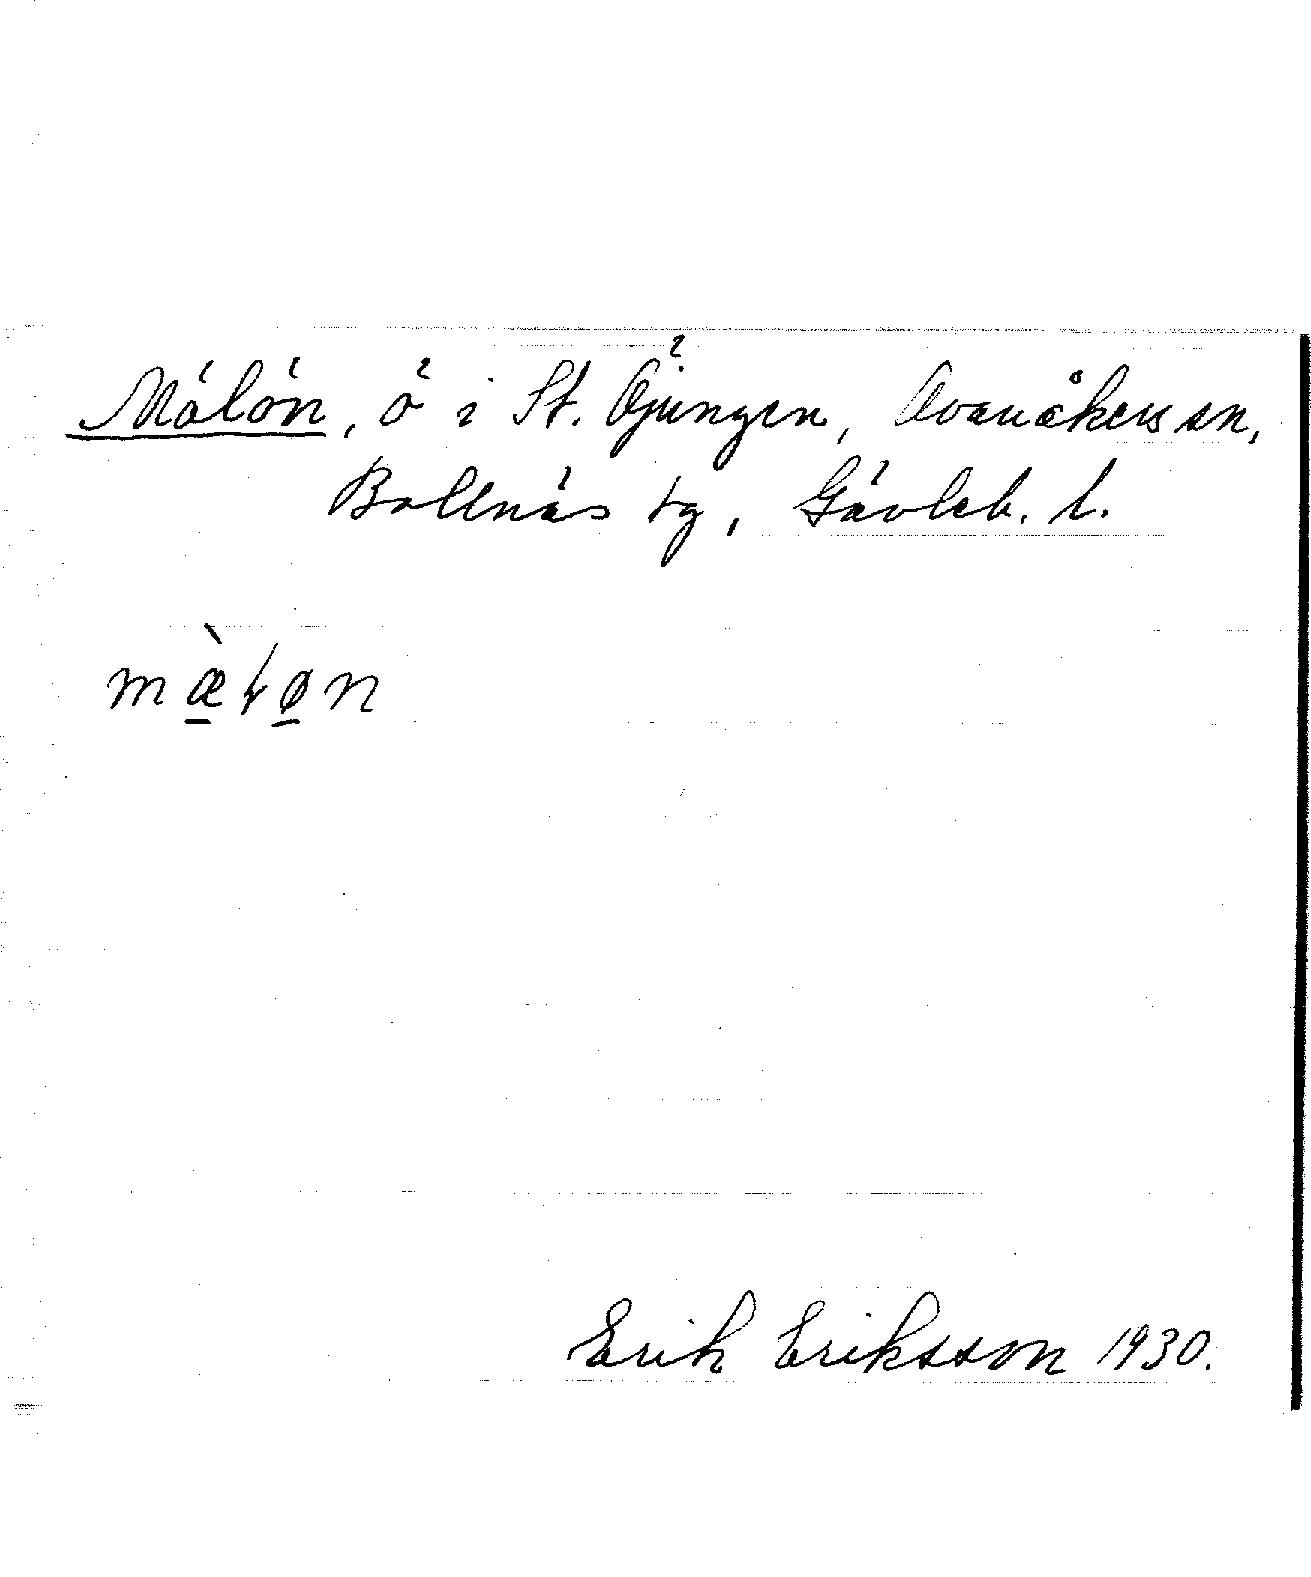 Mälön, ö i St. Öjungen, Ovanåkers sn,
Bollnäs tg, Gävleb. l.
mæ̀ɫøn
Erik Eriksson 1930.